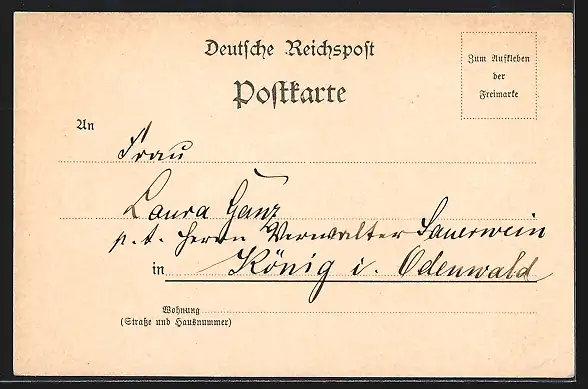 Deutsche Reichspost
Postkarte
Zum Aufkleben
der
Freimarke
An
Frau
Laura Ganz
p. t. Herrn Verwalter Sauerwein
in König i. Odenwald
Wohnung
(Straße und Hausnummer)